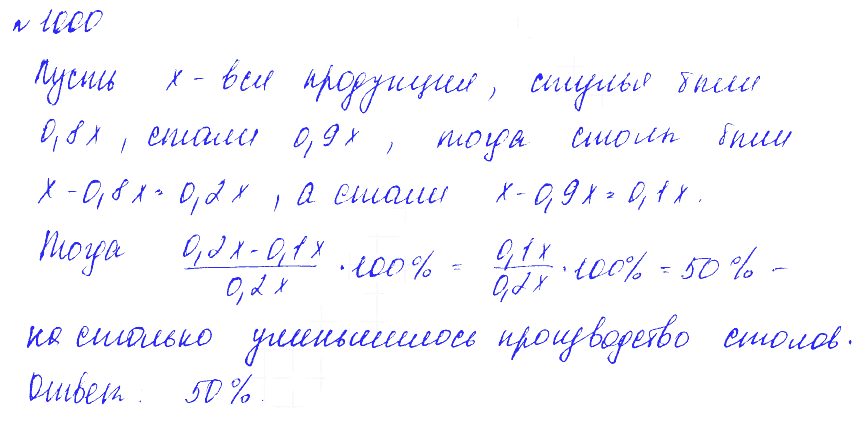 № 1000
Пусть x - вся продукция, стулья были
0,8x, стали 0,9x, тогда столы были
x-0,8x=0,2x, а стали x-0,9x=0,1x.
Тогда (0,2x-0,1x)/(0,2x) · 100% = (0,1x)/(0,2x) · 100% = 50% -
на столько уменьшилось производство столов.
Ответ. 50%.